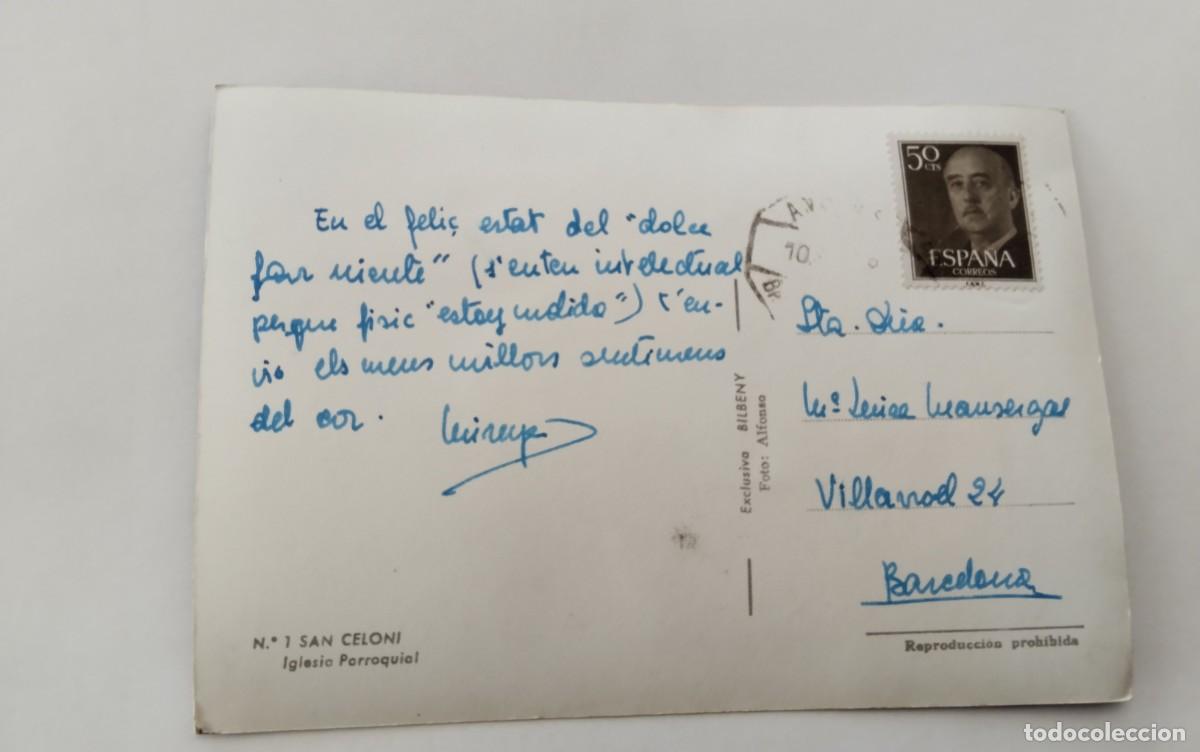 En el feliç estat del "dolce
far niente" (s'enten intelectual
perque fisic "estoy molido") t'en-
vio els meus millors sentimens
del cor.
50 CTS
ESPAÑA
CORREOS
10
Sta.
Mª
Villarroel 24
Barcelona
Exclusiva BILBENY
Foto: Alfonso
N.º 1 SAN CELONI
Iglesia Parroquial
Reproducción prohibida
todocoleccion